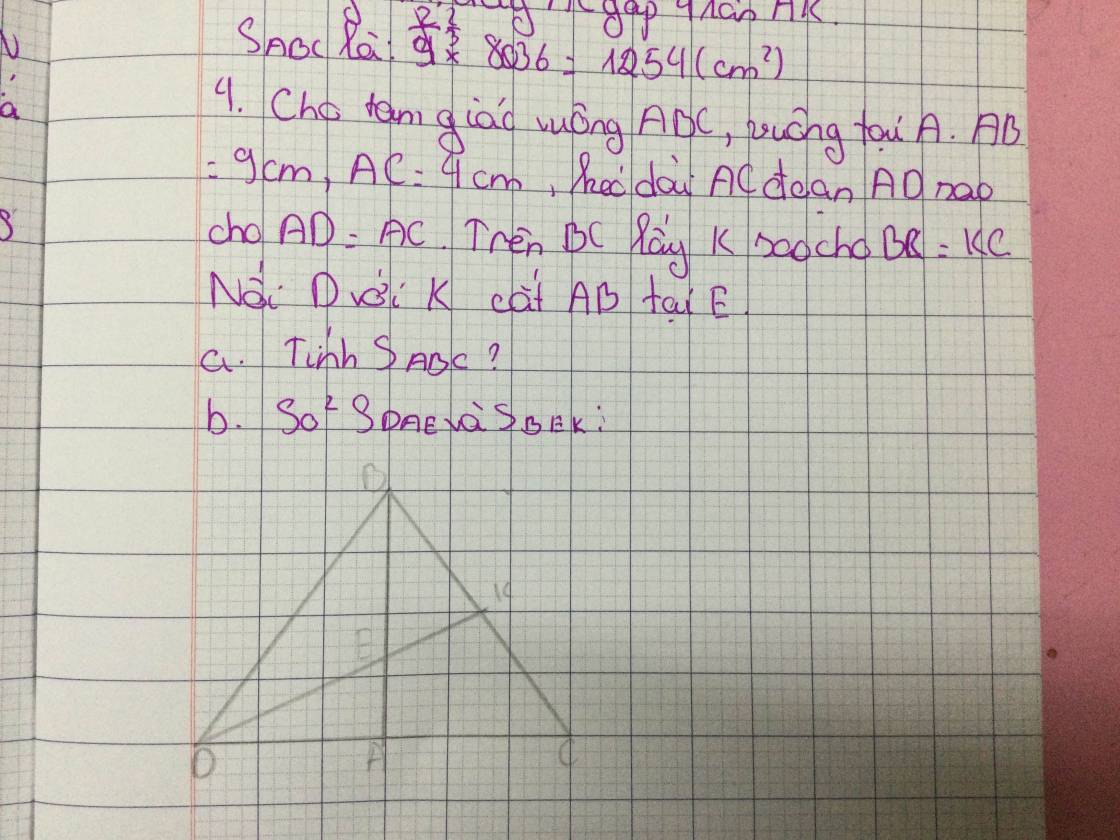 gấp 4 lần AK.
SABC là: 8036 = 1254 (cm²)
4. Cho tam giác vuông ABC, vuông tại A. AB
= 9cm, AC = 4cm, kéo dài AC đoạn AD sao
cho AD = AC. Trên BC lấy K sao cho BK = KC
Nối D với K cắt AB tại E.
a. Tính SABC?
b. So² SDAE và SBEK:
B
K
E
D A C